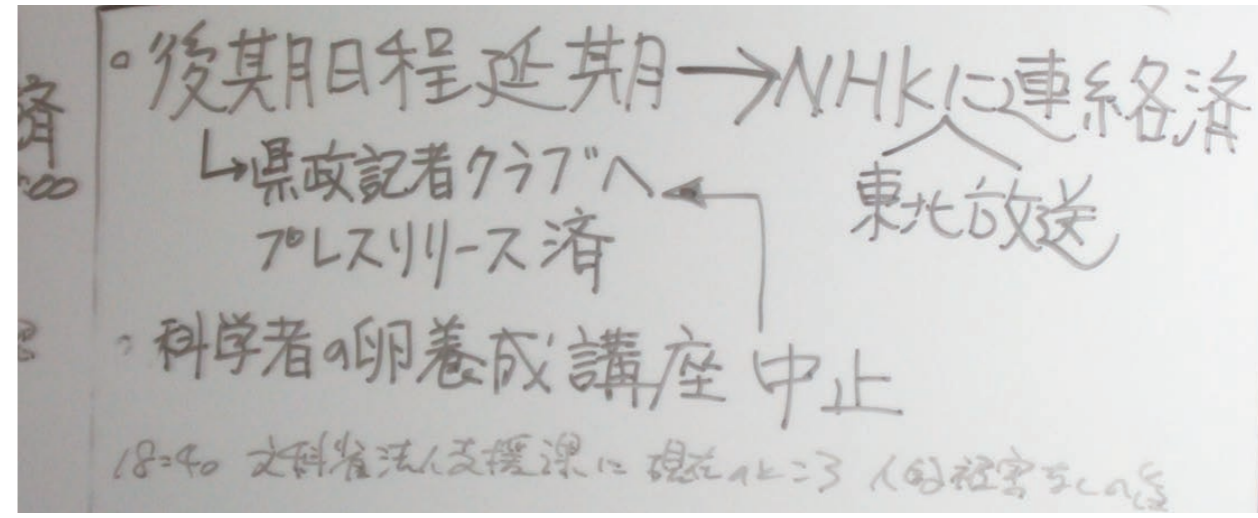 済
:00
。後期日程延期→NHKに連絡済
東北放送
↳県政記者クラブへ
プレスリリース済
・科学者の卵養成講座 中止
18:40 文科省法人支援課に 現在のところ 人的被害なしの